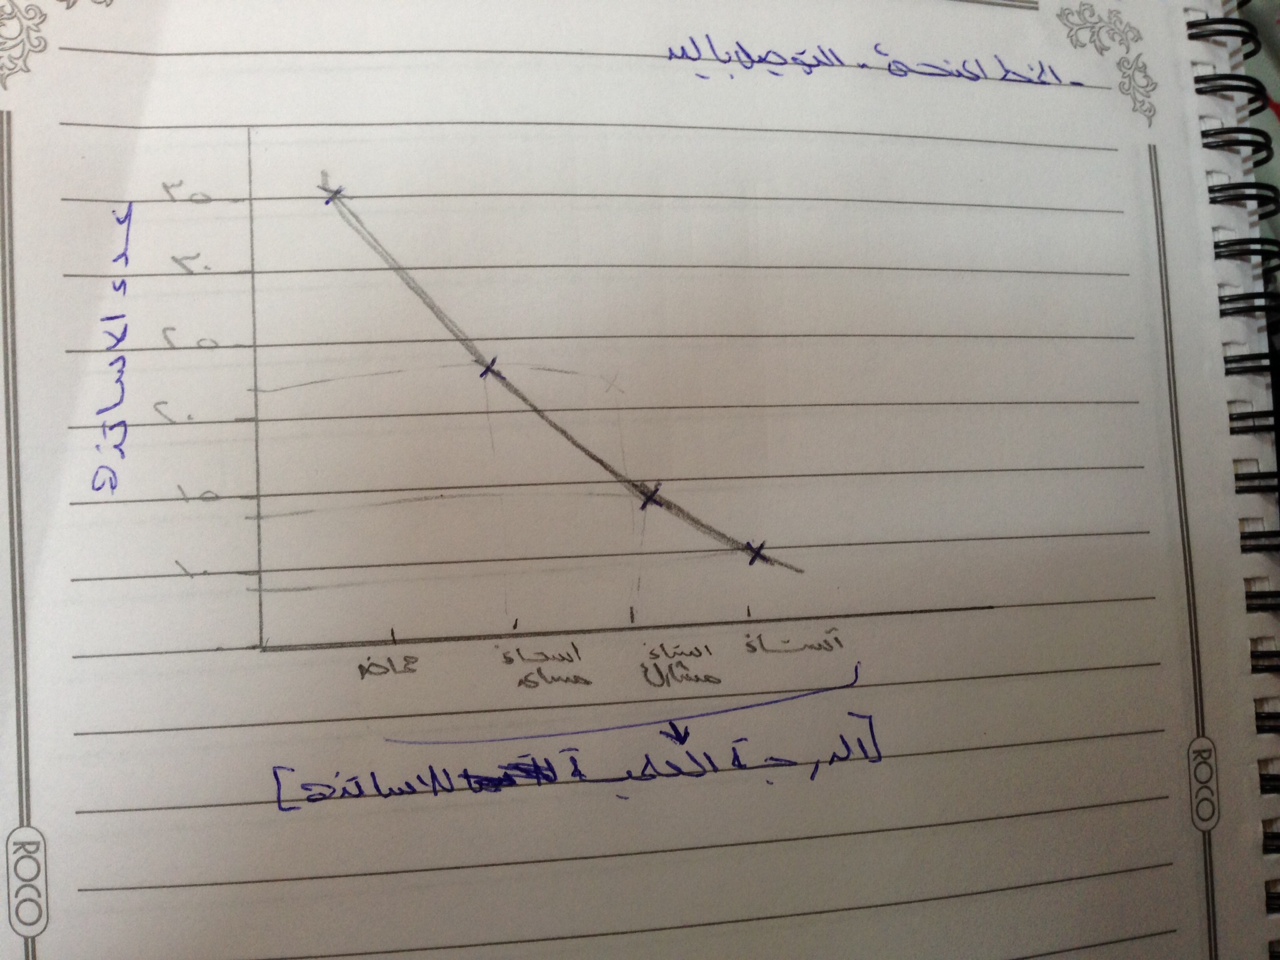 - الخط المنحني - التوصيل باليد
عدد الاساتذة
٣٥
٣٠
٢٥
٢٠
١٥
١٠
محاضر
استاذ مساعد
استاذ مشارك
استاذ
[الدرجة العلمية للاساتذة]
ROCO
ROCO